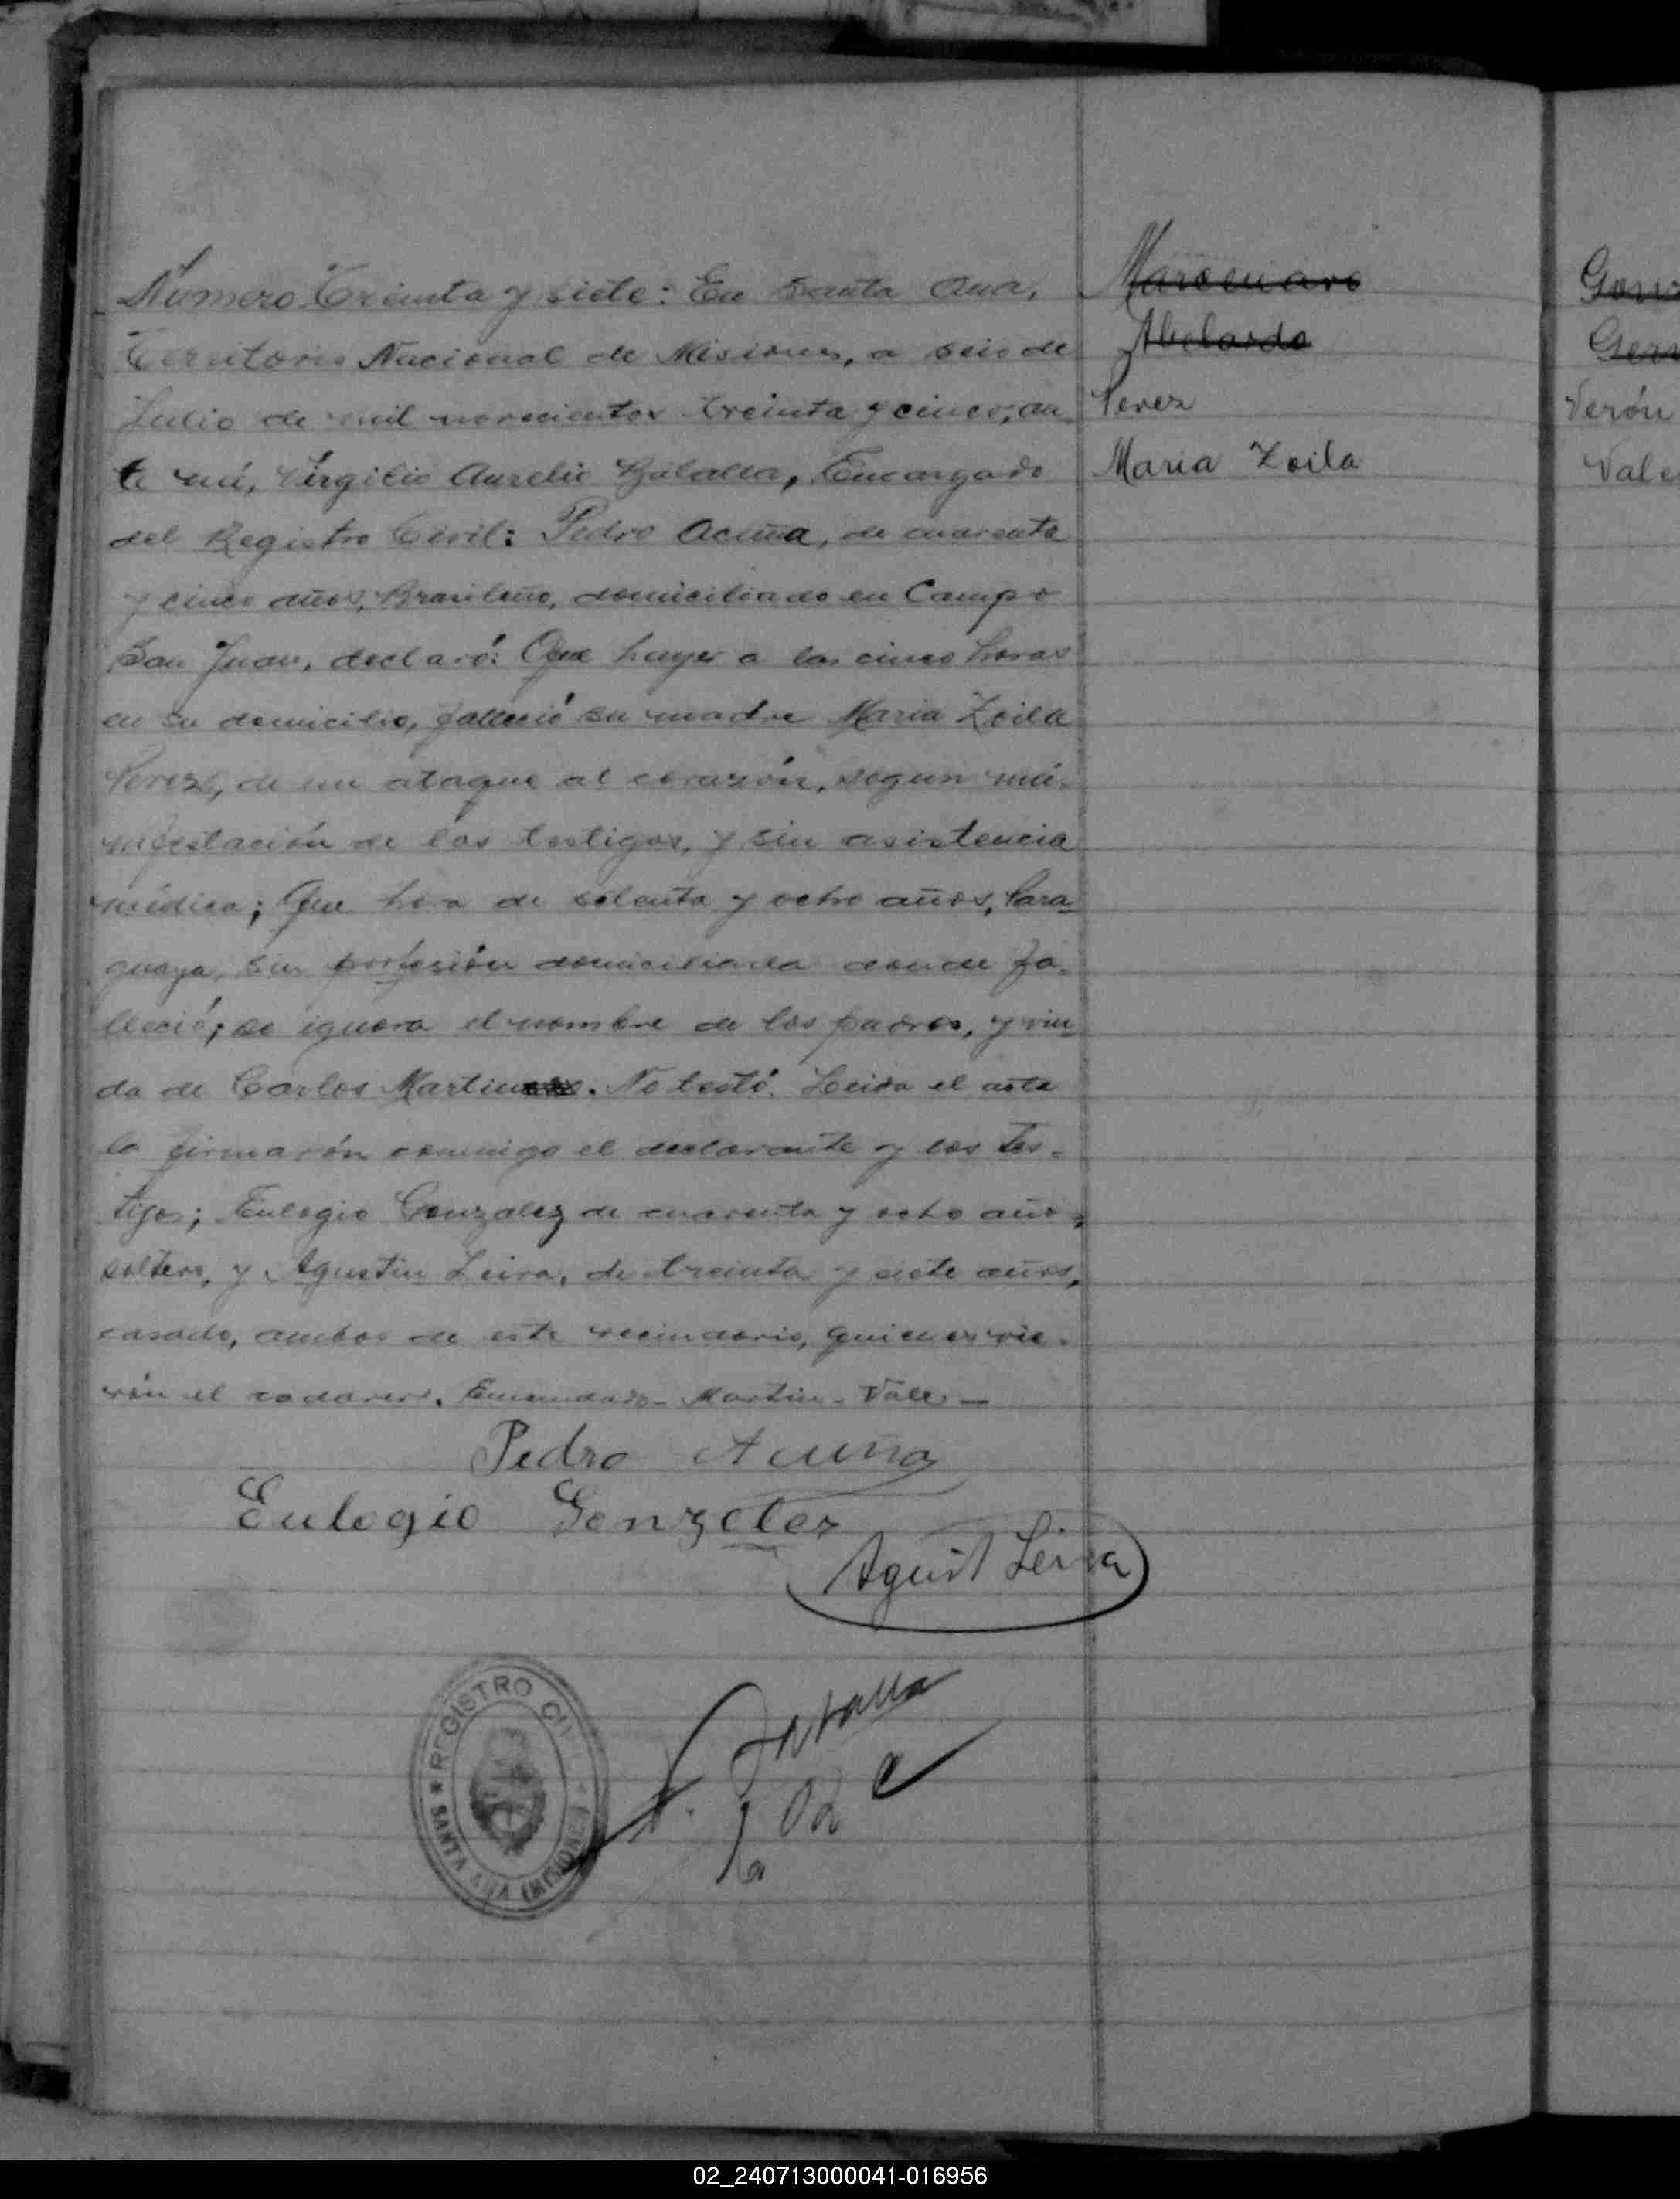 Número Treinta y siete: En Santa Ana,
Territorio Nacional de Misiones, a seis de
Julio de mil novecientos treinta y cinco, an
te mí, Virgilio Aurelio Encargado
del Registro Civil: Pedro Acuña, de cuarenta
y cinco años, Brasileño, domiciliado en Campo
San Juan, declaró: Que hayer a las cinco horas
en su domicilio, falleció su madre Maria Zoila
Perez, de un ataque al corazón, segun ma-
nifestación de los testigos, y sin asistencia
médica; Que hera de setenta y ocho años, Para-
guaya, sin profesión domiciliada donde fa-
lleció; se ignora el nombre de los padres, y viu-
da de Carlos Martin. No testó. Leida el acta
la firmarón conmigo el declarante y los tes-
tigos; Eulogio Gonzalez de cuarenta y ocho años,
soltero, y Agustin Leiva, de treinta y siete años,
casado, ambos de este vecindario, quienes vie-
rón el cadaver. Enmendado - Martin - Vale -
Pedro Acuña
Eulogio Gonzalez
Agust Leiva
REGISTRO CIVIL
SANTA ANA (MISIONES)
Marcenaro
Abelardo
Perez
Maria Zoila
Verón
02_240713000041-016956